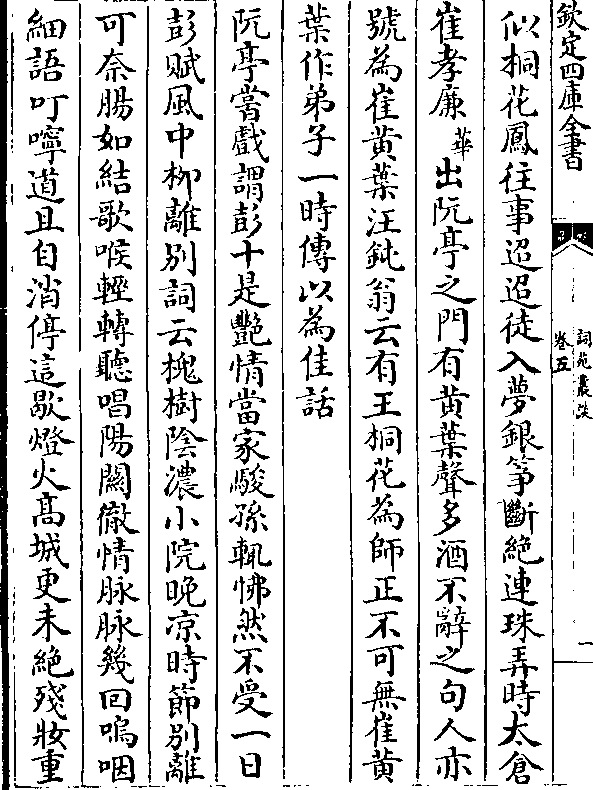 欽定四庫全書
詞苑叢談
卷五
一
似桐花鳳往事迢迢徒入夢銀箏斷絶連珠弄時太倉
崔孝廉華出阮亭之門有黄葉聲多酒不辭之句人亦
號為崔黄葉汪鈍翁云有王桐花為師正不可無崔黄
葉作弟子一時傳以為佳話
阮亭嘗戲謂彭十是艷情當家駿孫輒怫然不受一日
彭賦風中柳離别詞云槐樹陰濃小院晚凉時節别離
可奈腸如結歌喉輕轉聽唱陽闗徹情脉脉幾回嗚咽
細語叮嚀道且自消停這歇燈火髙城更未絶殘妝重